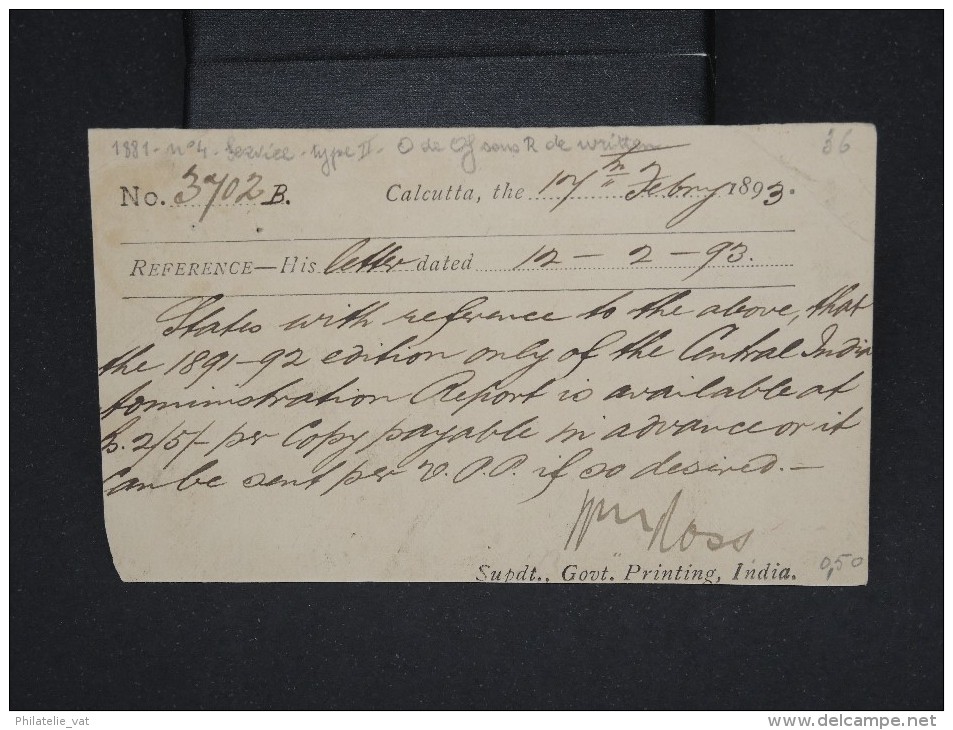 1881 - nº 4 - Service - type II - O de Of sous R de written 36
No. 3702 B. Calcutta, the 17th Febry 1893.
REFERENCE—His letter dated 12 - 2 - 93.
States with reference to the above, that
the 1891-92 edition only of the Central India
Administration Report is available at
2/5/- per Copy payable in advance or it
Can be sent per V.P.P. if so desired.—
Wm Ross
Supdt., Govt. Printing, India. 0,50
Philatelie_vat
www.delcampe.net